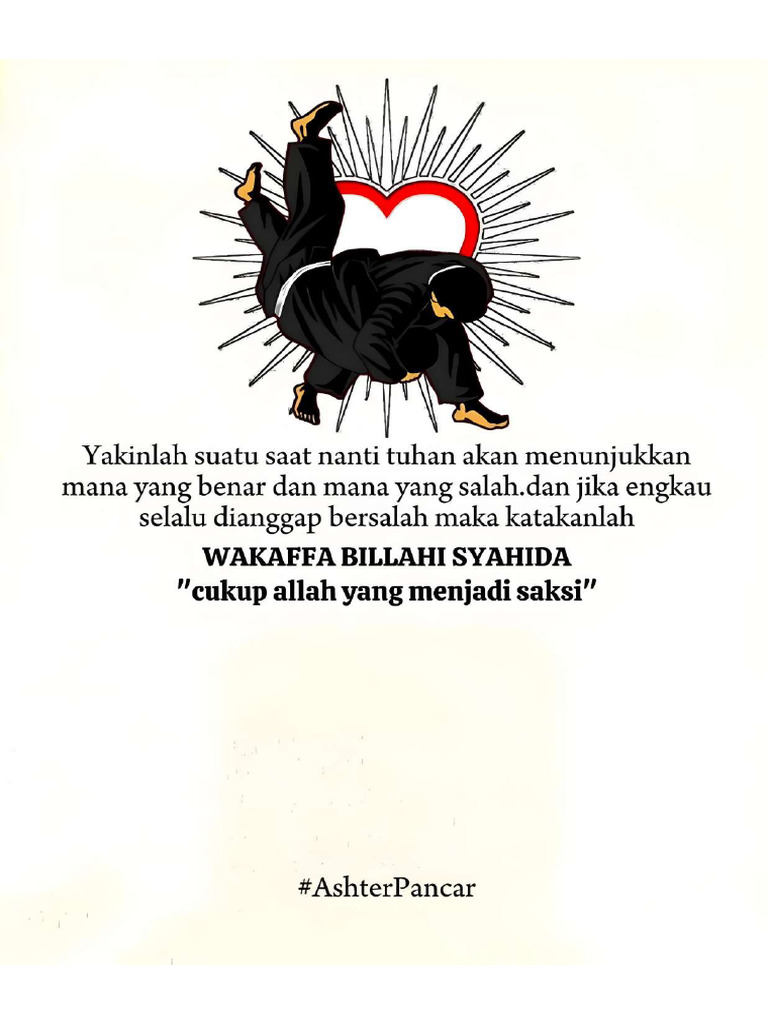 Yakinlah suatu saat nanti tuhan akan menunjukkan
mana yang benar dan mana yang salah.dan jika engkau
selalu dianggap bersalah maka katakanlah
WAKAFFA BILLAHI SYAHIDA
"cukup allah yang menjadi saksi"
#AshterPancar